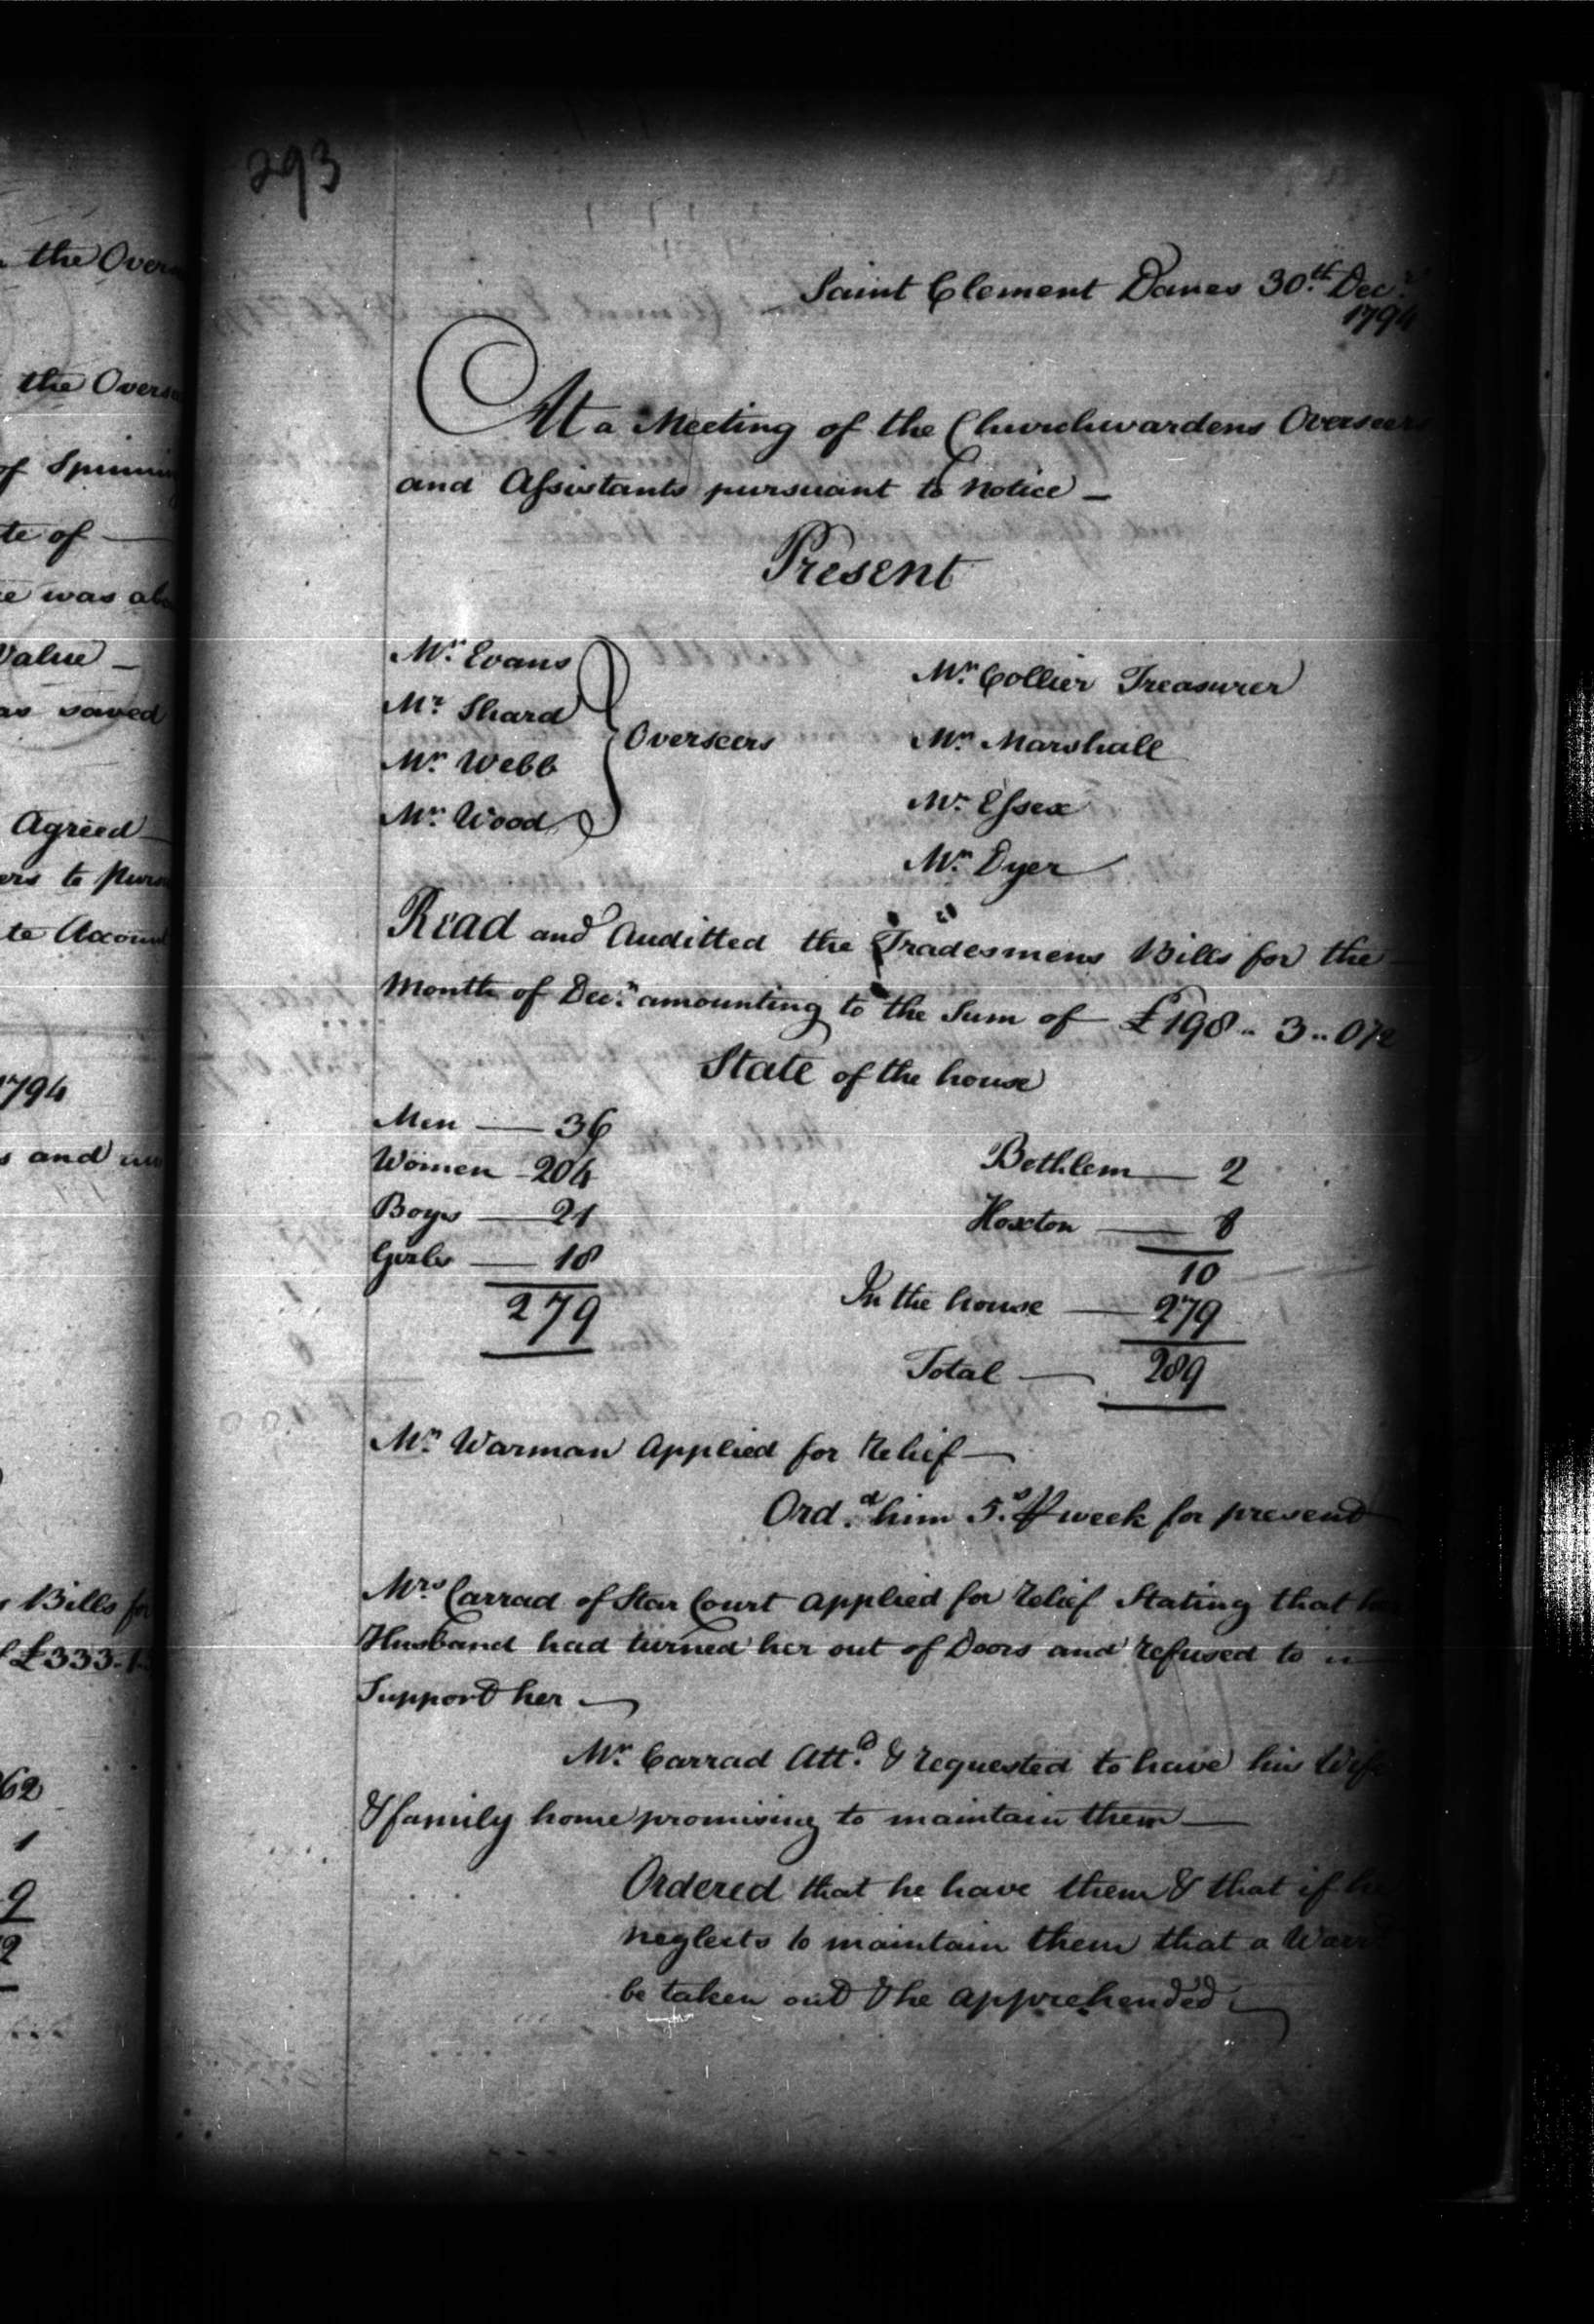 293
the Over
the Overs
of Spinnin
te of —
e was ab
Value —
as saved
Agreed
ers to purs
te Accoun
1794
s and
Bills for
£333-1
62
1
9
2
Saint Clement Danes 30.th Dec.r
1794
At a Meeting of the Churchwardens Overseers
and Assistants pursuant to Notice —
Present
Mr. Evans
Mr. Shard
Mr. Webb
Mr. Wood
Overseers
Mr. Collier Treasurer
Mr. Marshall
Mr. Essex
Mr. Dyer
Read and Auditted the Tradesmens Bills for the
Month of Dec.r amounting to the Sum of £198 .. 3 .. 0½
State of the house
Men — 36
Women - 204
Boys — 21
Girls — 18
279
Bethlem — 2
Hoxton — 8
10
In the house — 279
Total — 289
Mr. Warman Applied for Relief —
Ord.d him 5.s ⅌ week for present
Mrs Carrad of Star Court applied for relief Stating that her
Husband had turned her out of Doors and refused to
Support her —
Mr. Carrad Att.d & requested to have his Wife
& family home promising to maintain them —
Ordered that he have them & that if he
neglects to maintain them that a Warr.t
be taken out & he apprehended